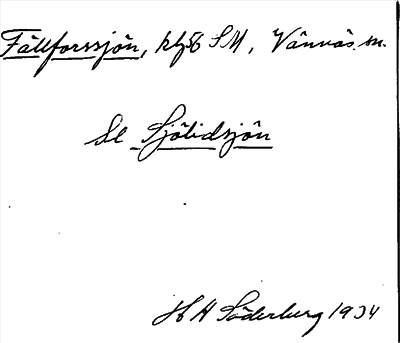 Fällforssjön, kbl8 SM, Vännäs sn.
Se Sjölidsjön
H H Söderberg 1934